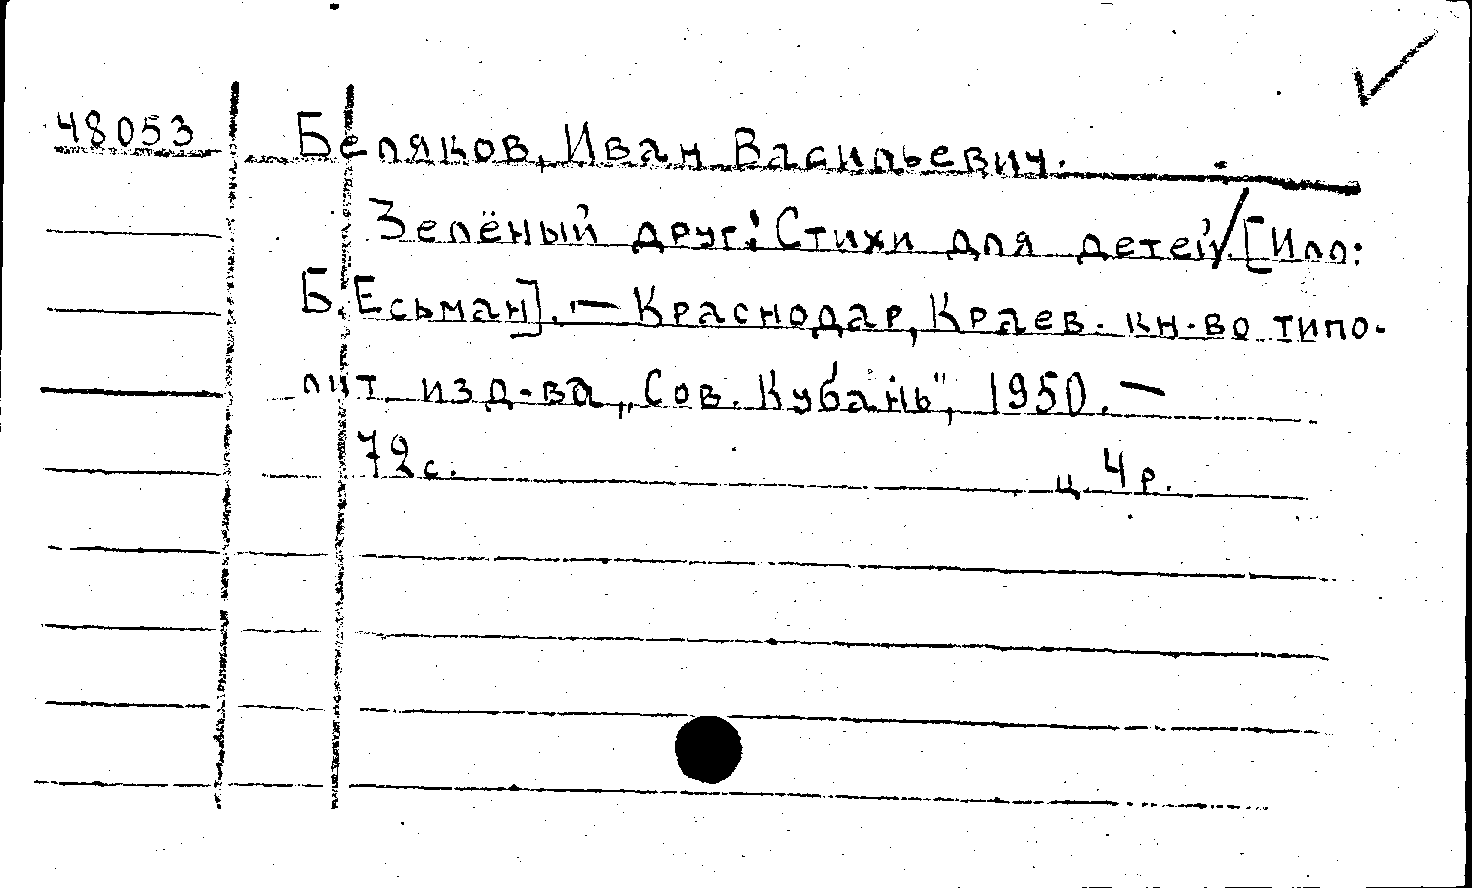 48053 Беляков, Иван Васильевич.
Зелёный друг: Стихи для детей/[Илл:
Б. Есьман]. — Краснодар, Краев. кн-во типо-
лит. изд-ва „Сов. Кубань", 1950. —
72 с. ц. 4 р.